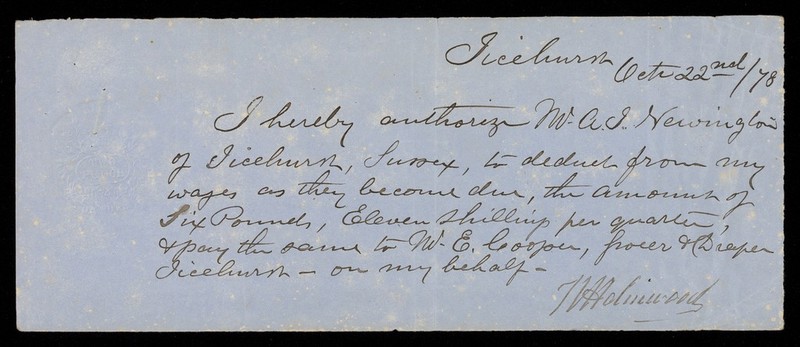 Ticehurst Octr 22nd/78
I hereby authorize Mr. A. S. Newington
of Ticehurst, Sussex, to deduct from my
wages as they become due, the amount of
Six Pounds, Eleven Shilling per quarter,
& pay the same to Mr. E. Cooper, Grocer & Draper
Ticehurst – on my behalf –
Holmwood